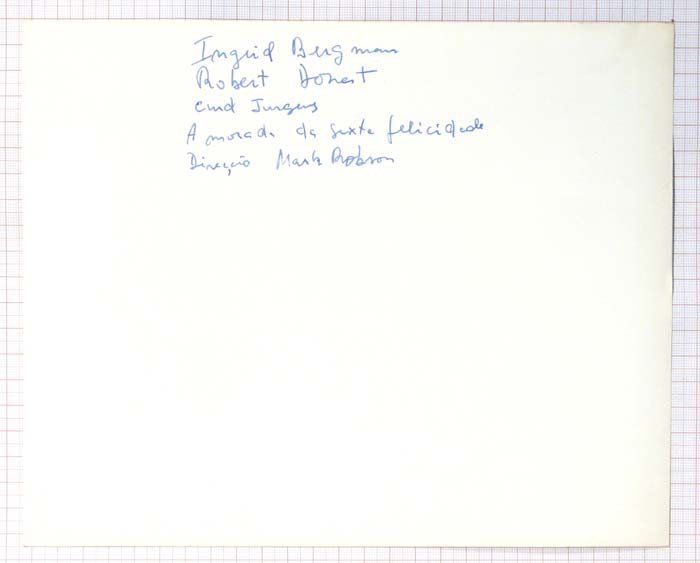 Ingrid Bergman
Robert Donat
Curd Jurgens
A morada da sexta felicidade
Direcção Mark Robson